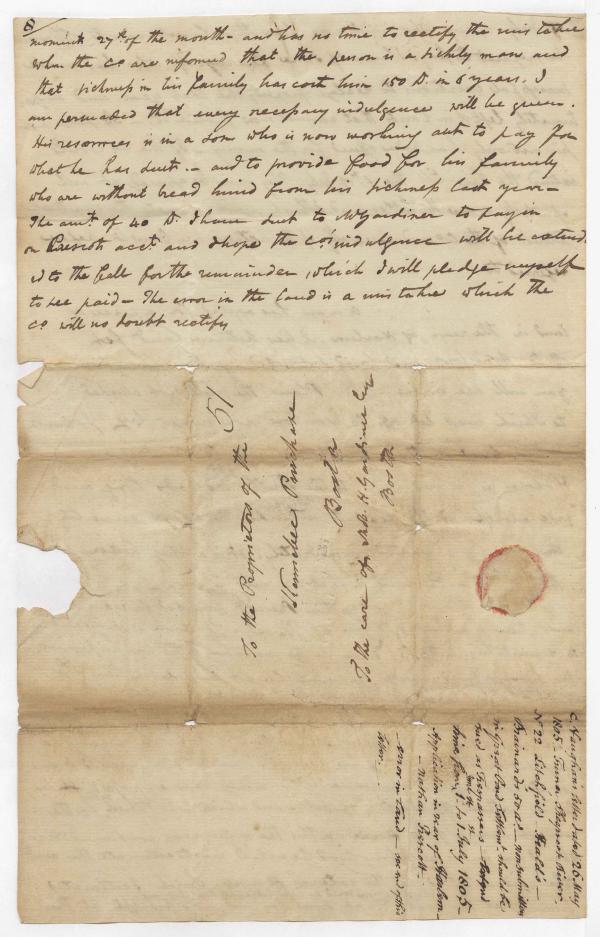 8
moment 27th of the month - and has no time to rectify the mistake
when the Co are informed that the person is a sickly man and
that sickness in his family has cost him 150 D. in 6 years. I
am persuaded that every necessary indulgence will be given.
His resources is in a son who is now working out to pay for
what he has due - and to provide food for his family
who are without bread kind from his sickness last year -
The amt. of 40 D. I have sent to Mr Gardiner to pay in
on Prescots acct. and I hope the Cos indulgence will be extend
ed to the fall for the remainder, which I will pledge myself
to see paid - The error in the land is a mistake which the
Co. will no doubt rectify
51
To the Proprietors of the
Kennebec Purchase
Boston
To the care of R. H. Gardiner Esq
Boston
C. Vaughan's letter dated 26 May
1805 - Sheepscot River -
No 22 Litchfield Heald's -
Brainards road - nonsubmission
Pond Settlers should be
sued as Trespassers -
time from 1. to 1 July 1805 -
Application in war of Harlem
- Nathan Prescott -
- error in Land - end of this
letter -